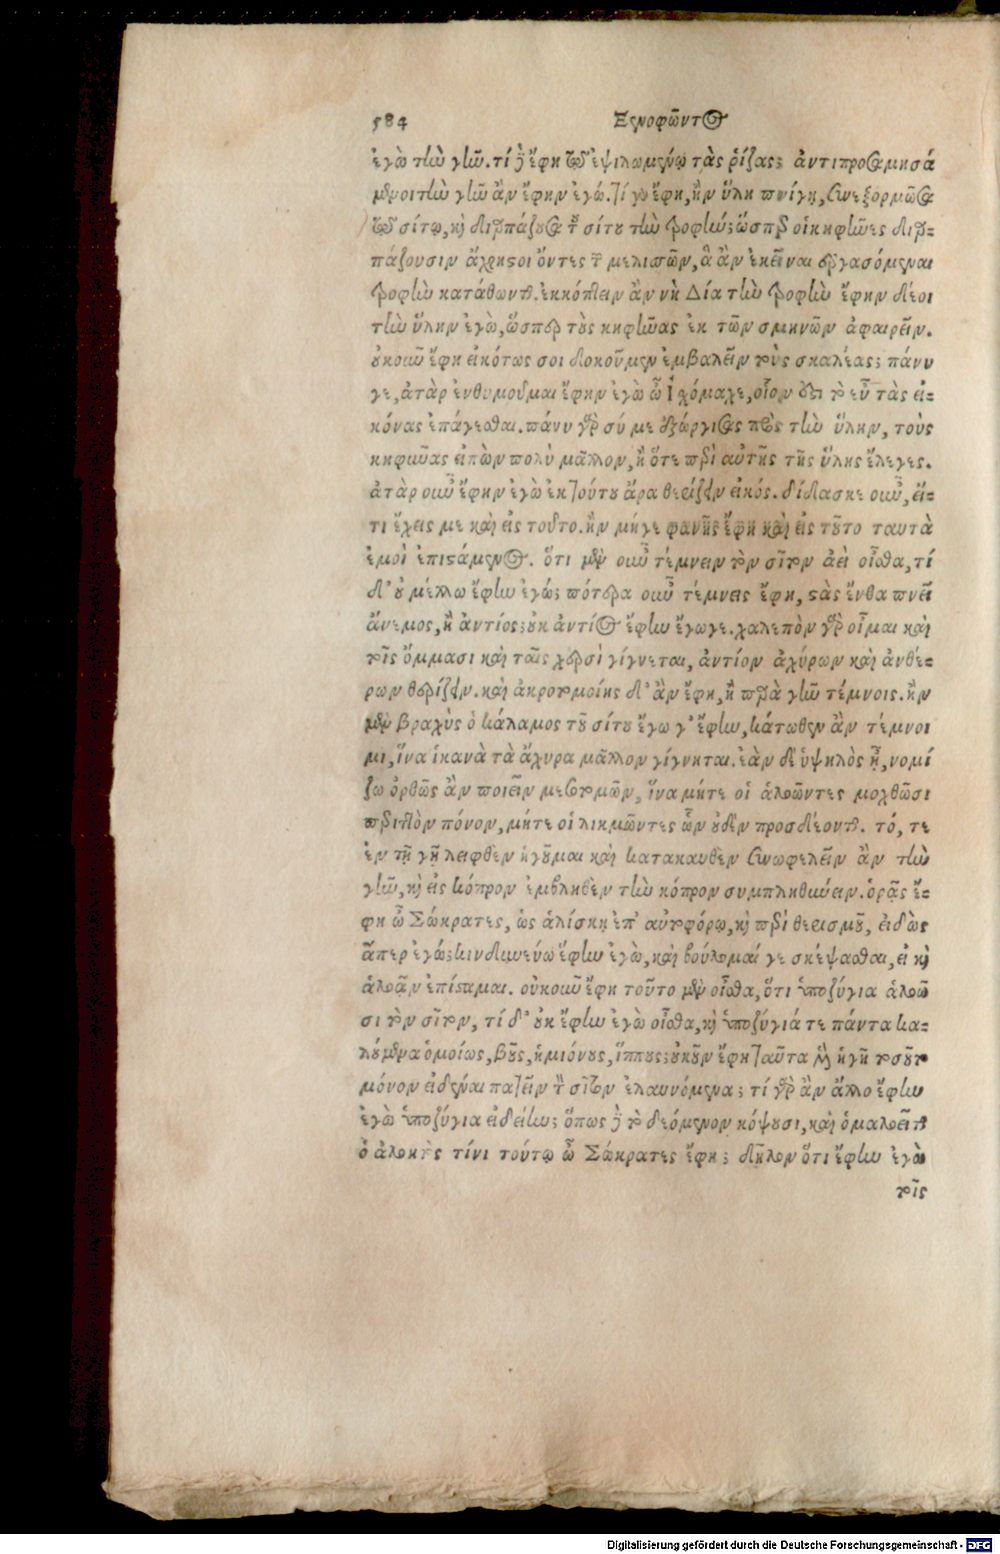 584 Ξενοφῶντος
ἐγὼ τὴν γῆν. τί δὲ ἔφη τῷ ἐψιλωμένῳ τὰς ῥίζας; ἀντιπροσαμησά
μενοι τὴν γῆν ἂν ἔφην ἐγώ. Τί γὰρ ἔφη, ἢν ὕλη πνίγῃ, συνεξορμῶσα
τῷ σίτῳ, καὶ διαρπάζουσα τοῦ σίτου τὴν τροφήν; ὥσπερ οἱ κηφῆνες διαρ-
πάζουσιν ἄχρηστοι ὄντες τῶν μελισσῶν, ἃ ἂν ἐκεῖναι ἐργασόμεναι
τροφὴν κατάθωνται. ἐκκόπτειν ἂν νὴ Δία τὴν τροφὴν ἔφην δέοι
τὴν ὕλην ἐγὼ, ὥσπερ τοὺς κηφῆνας ἐκ τῶν σμηνῶν ἀφαιρεῖν.
οὐκοῦν ἔφη εἰκότως σοι δοκοῦμεν ἐμβαλεῖν τοὺς σκαλέας; πάνυ
γε, ἀτὰρ ἐνθυμοῦμαι ἔφην ἐγὼ ὦ Ἰσχόμαχε, οἷον ἐστι τὸ εὖ τὰς εἰ-
κόνας ἐπάγεσθαι. πάνυ γὰρ σύ με ἐξώργισας πρὸς τὴν ὕλην, τοὺς
κηφῆνας εἰπὼν πολὺ μᾶλλον, ἢ ὅτε περὶ αὐτῆς τῆς ὕλης ἔλεγες.
ἀτὰρ οὖν ἔφην ἐγὼ ἐκ τούτου ἄρα θερίζειν εἰκός. δίδασκε οὖν, εἴ-
τι ἔχεις με καὶ εἰς τοῦτο. ἢν μήγε φανῇς ἔφη καὶ εἰς τοῦτο ταυτὰ
ἐμοὶ ἐπιστάμενος. ὅτι μὲν οὖν τέμνειν τὸν σῖτον ἀεὶ οἶσθα, τί
δ' οὐ μέλλω ἔφην ἐγώ; πότερα οὖν τέμνεις ἔφη, στὰς ἔνθα πνεῖ
ἄνεμος, ἢ ἀντίος; οὐκ ἀντίος ἔφην ἔγωγε. χαλεπὸν γὰρ οἶμαι καὶ
τοῖς ὄμμασι καὶ ταῖς χερσὶ γίγνεται, ἀντίον ἀχύρων καὶ ἀνθέ-
ρων θερίζειν. καὶ ἀκροτομοίης δ' ἂν ἔφη, ἢ παρὰ γῆν τέμνοις. ἢν
μὲν βραχὺς ὁ κάλαμος τοῦ σίτου ἔγω γ' ἔφην, κάτωθεν ἂν τέμνοι
μι, ἵνα ἱκανὰ τὰ ἄχυρα μᾶλλον γίγνηται. ἐὰν δὲ ὑψηλὸς ᾖ, νομί
ζω ὀρθῶς ἂν ποιεῖν μεσοτομῶν, ἵνα μήτε οἱ ἁλοῶντες μοχθῶσι
περιττὸν πόνον, μήτε οἱ λικμῶντες ὧν οὐδὲν προσδέονται. τό, τε
ἐν τῇ γῇ λειφθὲν ἡγοῦμαι καὶ κατακαυθὲν συνωφελεῖν ἂν τὴν
γῆν, καὶ εἰς κόπρον ἐμβληθὲν τὴν κόπρον συμπληθύειν. ὁρᾷς ἔ-
φη ὦ Σώκρατες, ὡς ἁλίσκῃ ἐπ' αὐτοφόρῳ, καὶ περὶ θερισμοῦ, εἰδὼς
ἅπερ ἐγώ; κινδυνεύω ἔφην ἐγὼ, καὶ βούλομαί γε σκέψασθαι, εἰ καὶ
ἁλοᾷν ἐπίσταμαι. οὐκοῦν ἔφη τοῦτο μὲν οἶσθα, ὅτι ὑποζύγια ἁλοῶ
σι τὸν σῖτον, τί δ' οὐκ ἔφην ἐγὼ οἶσθα, καὶ ὑποζύγιά τε πάντα κα-
λούμενα ὁμοίως, βοῦς, ἡμιόνους, ἵππους; οὐκοῦν ἔφη ταῦτα μὲν ἡγῇ τοσοῦτο
μόνον εἰδέναι πατεῖν τὸν σῖτον ἐλαυνόμενα; τί γὰρ ἂν ἄλλο ἔφην
ἐγὼ ὑποζύγια εἰδείην; ὅπως δὲ τὸ δεόμενον κόψουσι, καὶ ὁμαλοεῖται
ὁ ἀλοητὸς τίνι τούτῳ ὦ Σώκρατες ἔφη; δῆλον ὅτι ἔφην ἐγὼ
τοῖς
Digitalisierung gefördert durch die Deutsche Forschungsgemeinschaft - DFG